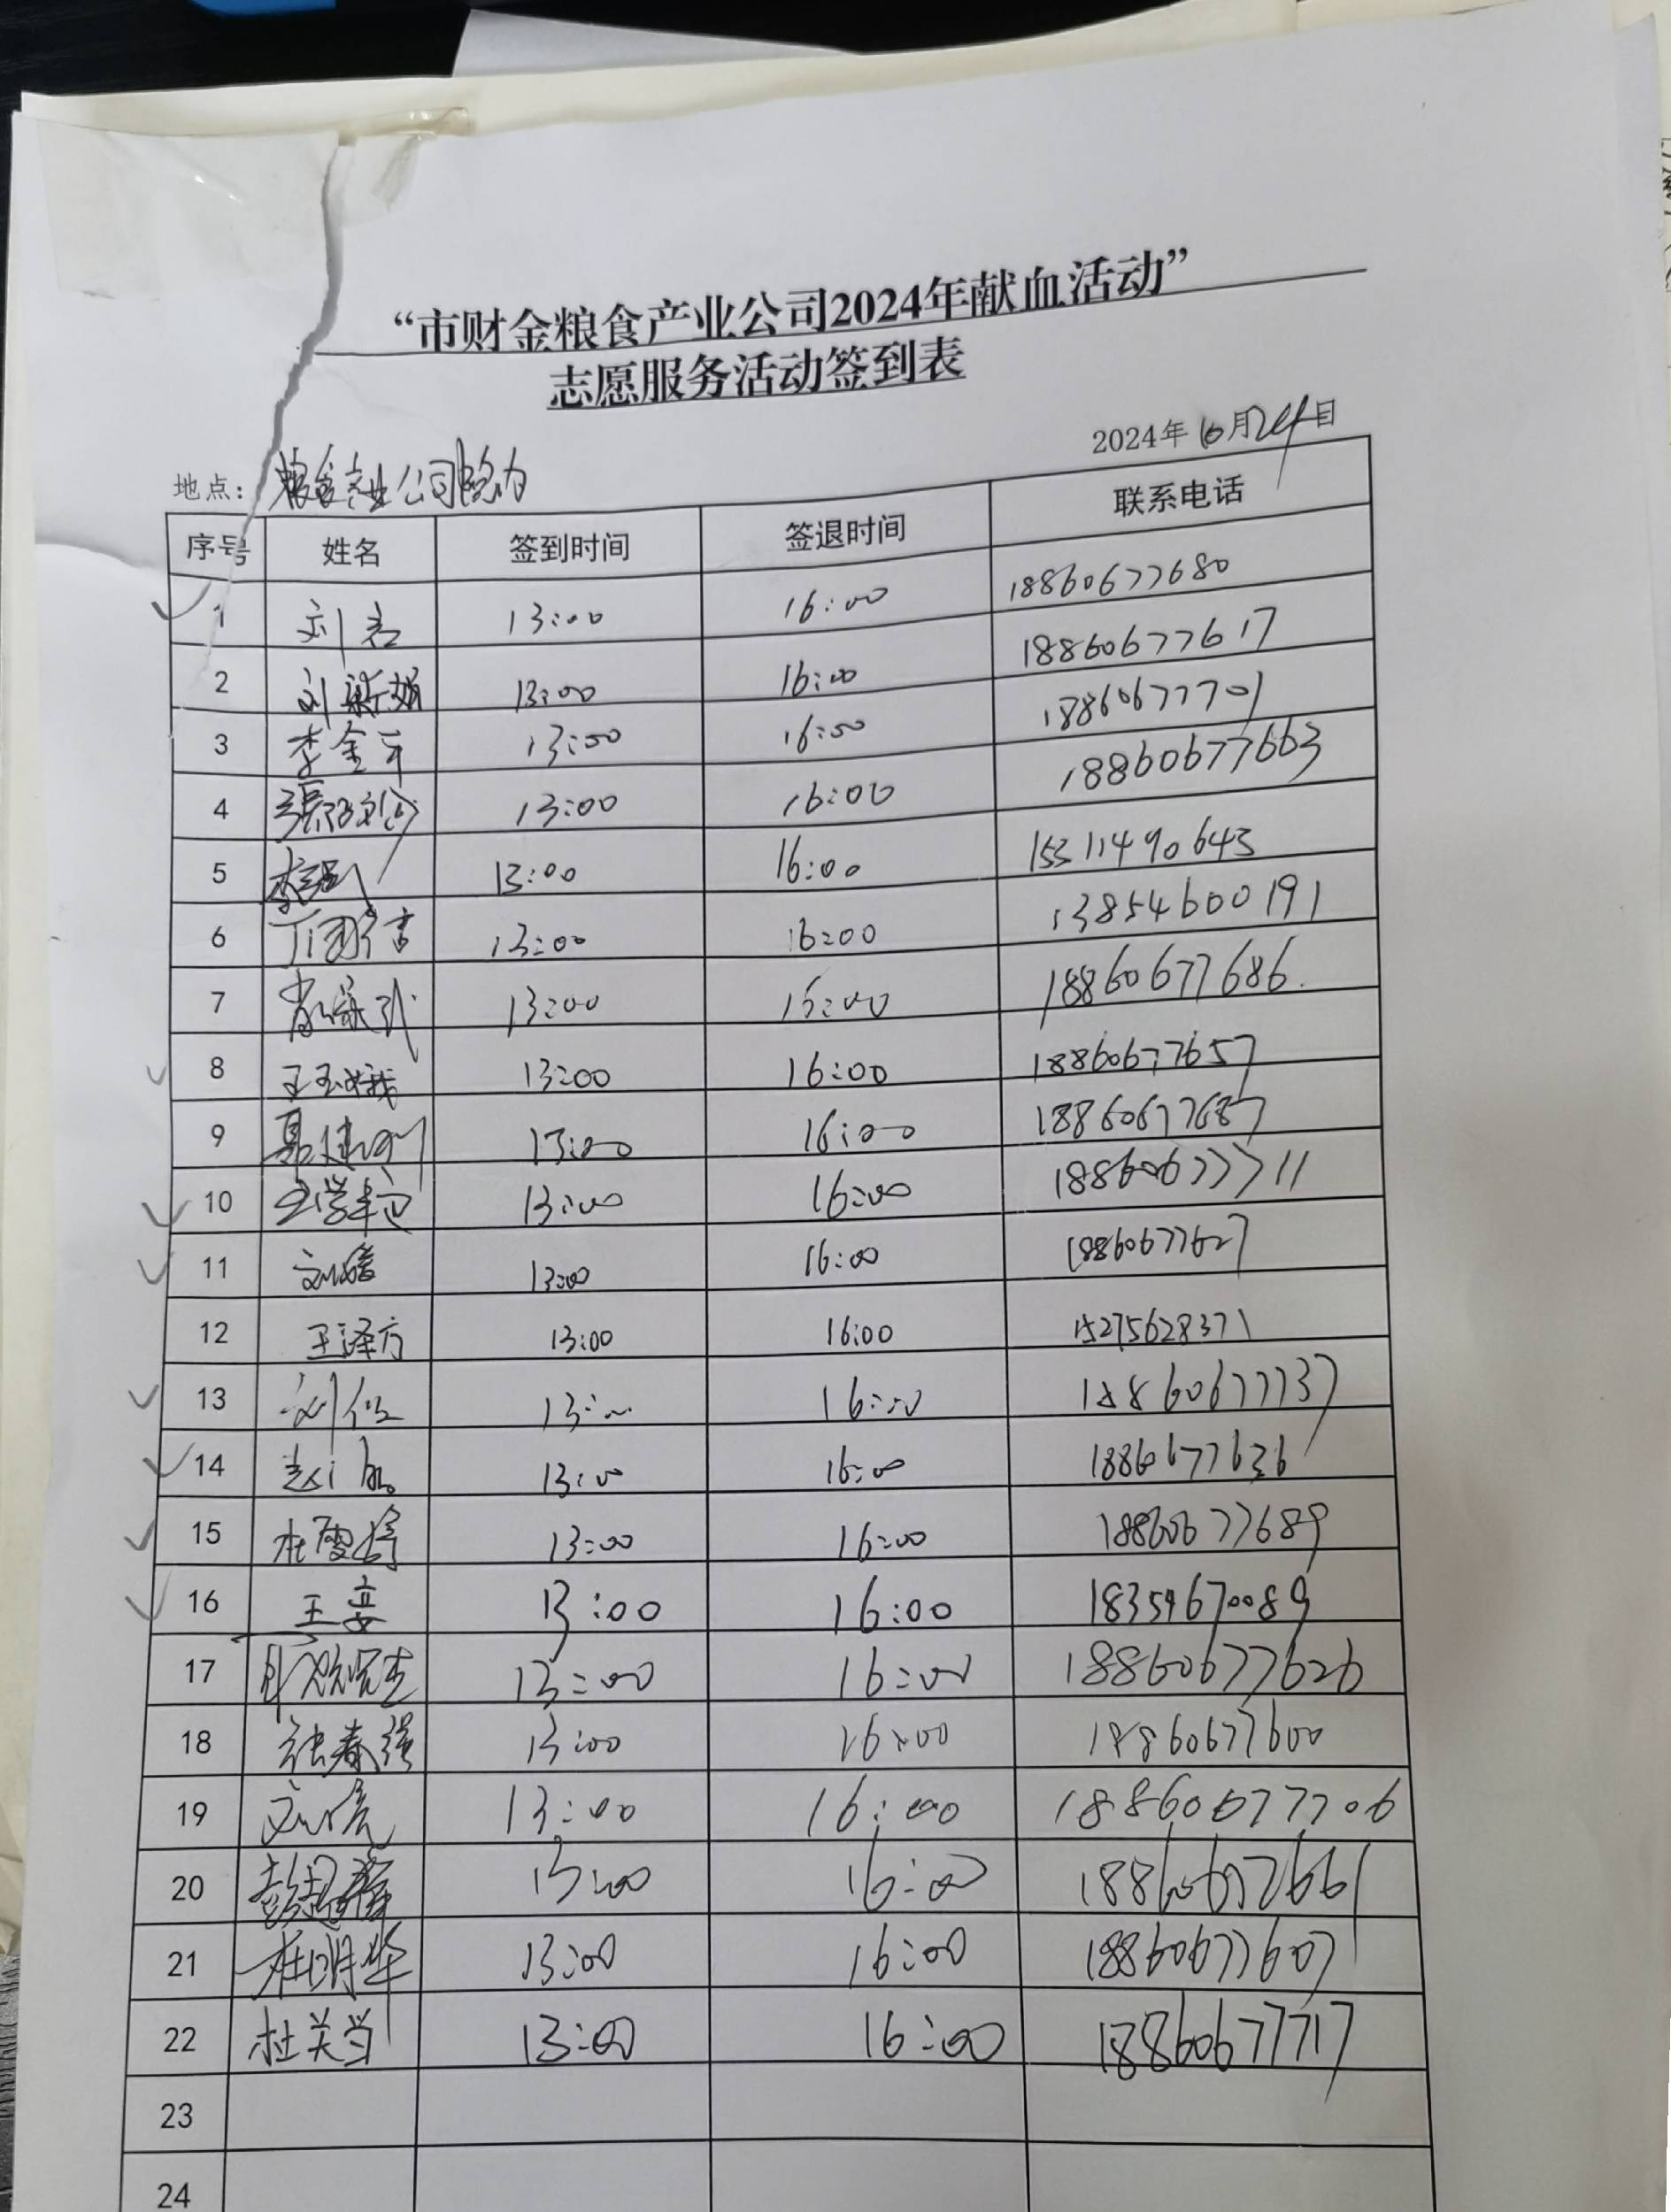 “市财金粮食产业公司2024年献血活动”
志愿服务活动签到表
2024年10月24日
地点：粮食产业公司院内
序号 姓名 签到时间 签退时间 联系电话
1 13:00 16:00 18860677680
2 刘新娟 13:00 16:00 18860677617
3 李金平 13:00 16:00 18860677701
4 13:00 16:00 18860677663
5 13:00 16:00 15311490643
6 13:00 16:00 13854600191
7 13:00 16:00 18860677686
8 王玉娥 13:00 16:00 18860677657
9 13:00 16:00 18860677687
10 13:00 16:00 18860677711
11 13:00 16:00 18860677627
12 王泽方 13:00 16:00 15275628371
13 13:00 16:00 18860677737
14 13:00 16:00
15 杜雪婷 13:00 16:00 18860677689
16 王妾 13:00 16:00 18354670089
17 13:00 16:00 18860677626
18 张春强 13:00 16:00 18860677600
19 13:00 16:00 18860677706
20 13:00 16:00 18860677661
21 杜明华 13:00 16:00 18860677607
22 杜关当 13:00 16:00 18860677717
23
24